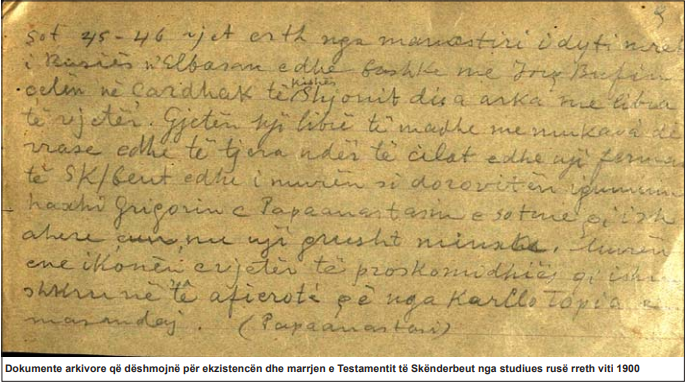 Sot 45-46 vjet erth nga manastiri i dyti mret
i Rusiës n'Elbasan edhe bashke me Jorg Bufin
çelën në Çardhak të kishës Shjonit disa arka me libra
të vjetër. Gjetën një libër të madhe me mukava dë
rrase edhe të tjera ndër të cilat edhe një ferman
të SK/beut edhe i muren si dorovitën igumum
haxhi Grigorin e Papaanastasin e sotme qi ish
ahere me një grusht . Muren
ene ikonën e vjetër të proskomidhiës qi ishi
shkru në të afierotë çë nga Karllo Topia e
masandaj. (Papaanastasi)
Dokumente arkivore që dëshmojnë për ekzistencën dhe marrjen e Testamentit të Skënderbeut nga studiues rusë rreth viti 1900